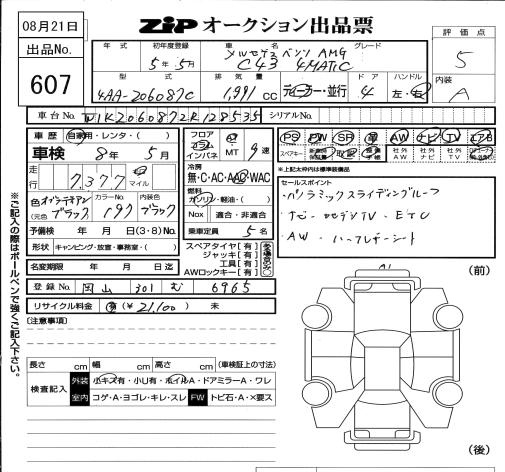 08月21日
ZIP オークション出品票
出品No.
607
評価点
5
内装
A
年式 初年度登録 車名 グレード
5年 5月 メルセデスベンツ AMG
C43 4MATIC
型式 排気量 ドア ハンドル
4AA-206087C 1,991 CC ディーラー・並行 4 左・右
車台No. W1K2060872R128535 シリアルNo.
車歴 自家用・レンタ・( )
車検 8年 5月
走行 7,377 km マイル
色 オブシディアンブラック
(元色 )
カラーNo. 197
内装色 ブラック
予備検 年 月 日(3・8)No.
形状 キャンピング・放置・事務室・( )
名変期限 年 月 日迄
フロア コラム インパネ AT MT 9速
冷房
無・C・AC・AAC・WAC
燃料
ガソリン・軽油・( )
Nox 適合・非適合
乗車定員 5名
スペアタイヤ【有】
ジャッキ【有】
工具【有】
AWロックキー【有】
PS PW SR 革 AW ナビ TV エアB
スペアキー 新車時保証書 取説 記録簿 社外AW 社外ナビ 社外TV
※上記太枠内は標準装備品
セールスポイント
・パノラミックスライディングルーフ
・ナビ・地デジTV・ETC
・AW・ハーフレザーシート
登録No. 岡山 301 む 6965
リサイクル料金 有 (¥21,100) 未
(注意事項)
長さ cm 幅 cm 高さ cm (車検証上の寸法)
検査記入 外装 小キズ有・小U有・ホイルA・ドアミラーA・ワレ
室内 コゲ・A・ヨゴレ・キレ・スレ FW トビ石・A・X要ス
(前)
(後)
※ご記入の際はボールペンで強くご記入下さい。